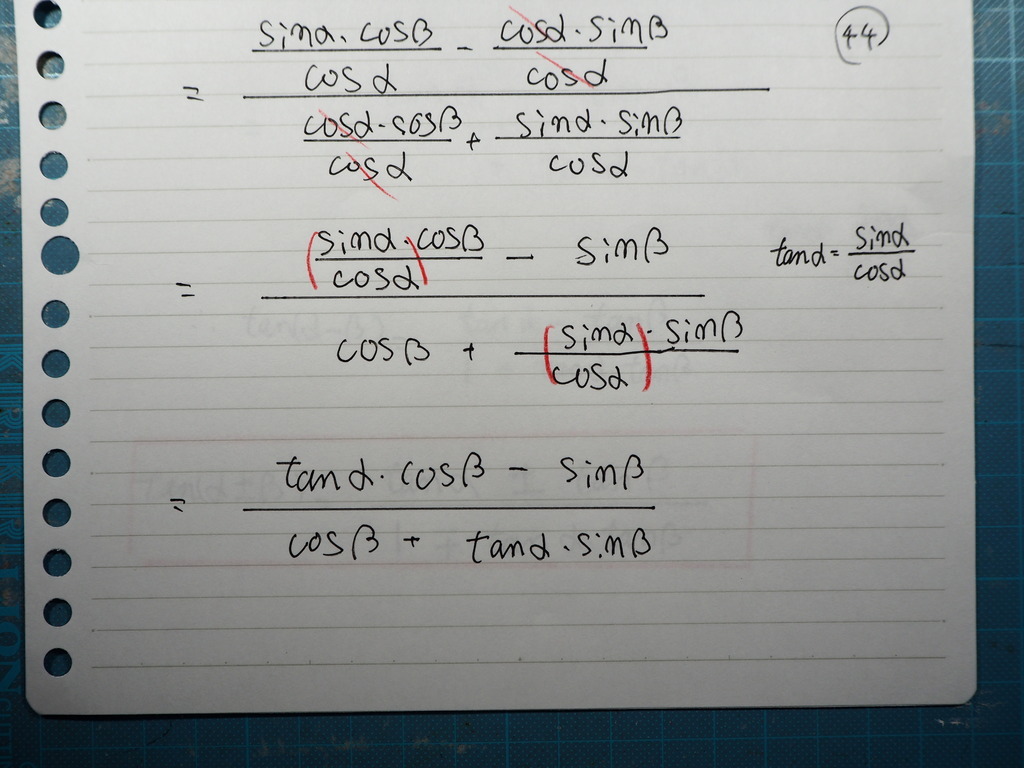 44
sinα·cosβ/cosα - cosα·sinβ/cosα
=
cosα·cosβ/cosα + sinα·sinβ/cosα
(sinα/cosα)·cosβ - sinβ
=
cosβ + (sinα/cosα)·sinβ
tanα = sinα/cosα
tanα·cosβ - sinβ
=
cosβ + tanα·sinβ